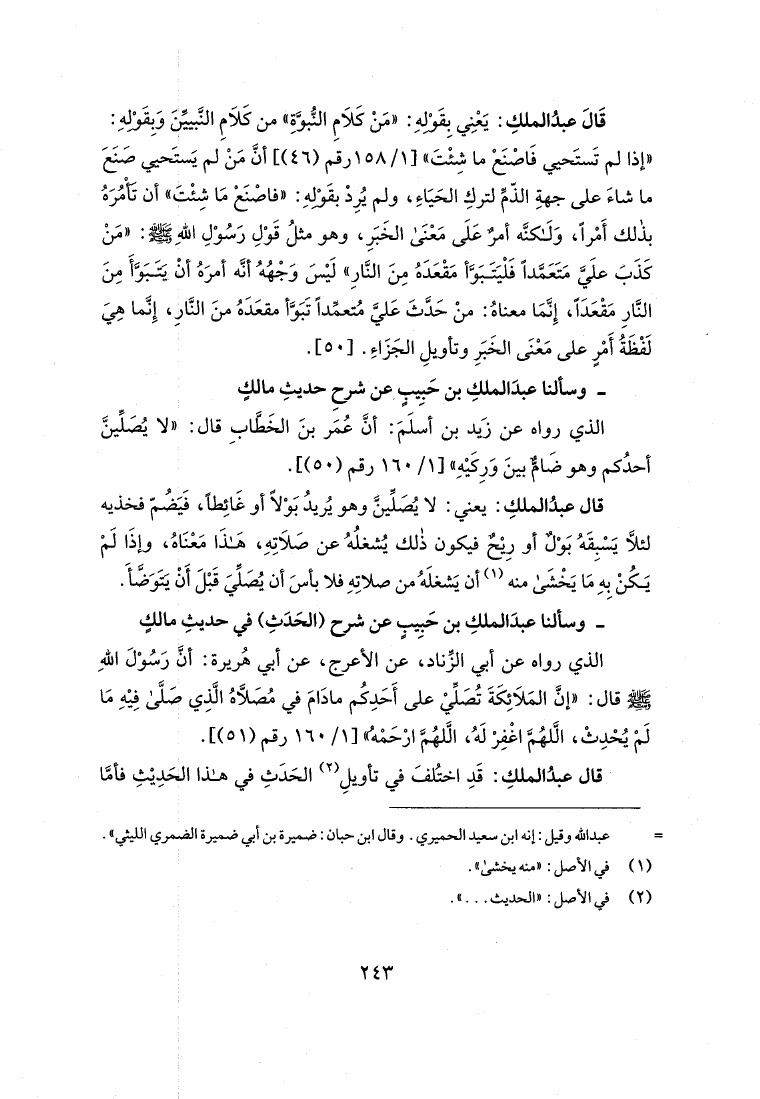 قَالَ عبدُالملكِ: يَعْنِي بِقَوْلِهِ: «مَنْ كَلَامِ النُّبوَّةِ» من كَلَامِ النَّبيِّنَ وَبِقَوْلِهِ:
«إذا لم تَستَحيي فَاصْنَعْ ما شِئْتَ» [١/ ١٥٨رقم (٤٦)] أنَّ مَنْ لم يَستَحيي صَنَعَ
ما شاءَ على جهةِ الذَّمِّ لتركِ الحَيَاءِ، ولم يُرِدْ بقَوْلِهِ: «فاصْنَعْ مَا شِئْتَ» أن تَأْمُرَهُ
بذٰلك أَمْراً، وَلَـٰكنَّه أمرٌ عَلَى مَعْنَىٰ الخَبَرِ، وهو مثلُ قَوْلِ رَسُوْلِ اللهِ ﷺ: «مَنْ
كَذَبَ عليَّ مَتَعَمَّداً فَلْيَتَبوَّأ مَقْعَدَهُ مِنَ النَّارِ» لَيْسَ وَجْهُهُ أنَّه أمرَهُ أنْ يَتَبَوَّأَ مِنَ
النَّارِ مَقْعَدَاً، إِنَّمَا معناهُ: منْ حَدَّثَ عَليَّ مُتعمِّداً تَبَوَّأ مقعَدَهُ منَ النَّارِ، إِنَّما هِيَ
لَفْظَةُ أَمْرٍ على مَعْنَى الخَبَرِ وتأويلِ الجَزَاءِ. [٥٠].
ـ وسألنا عبدَالملكِ بن حَبِيبٍ عن شرحِ حديثِ مالكٍ
الذي رواه عن زَيد بن أسلَمَ: أنَّ عُمَر بنَ الخَطَّابِ قال: «لا يُصَلِّينَّ
أحدُكم وهو ضَامٌّ بينَ وَرِكَيْهِ» [١/ ١٦٠ رقم (٥٠)].
قال عبدُالملكِ: يعني: لا يُصَلِّينَّ وهو يُريدُ بَوْلاً أو غَائِطاً، فَيَضُمّ فخذيه
لئلاَّ يَسْبِقَهُ بَوْلٌ أو رِيْحٌ فيكون ذٰلك يُشغلُهُ عن صَلَاتِهِ، هَـٰذَا مَعْنَاهُ، وإذَا لَمْ
يَـكُنْ بِهِ مَا يَخْشَىٰ منه (١) أن يَشغلَهُ من صلاتِهِ فلا بأسَ أن يُصَلِّيَ قَبْلَ أَنْ يَتَوَضَّأَ.
ـ وسألنا عبدَالملكِ بن حَبِيبٍ عن شرح (الحَدَثِ) في حديثِ مالكٍ
الذي رواه عن أبي الزِّناد، عن الأعرج، عن أبي هُريرة: أنَّ رَسُوْلَ اللهِ
ﷺ قال: «إنَّ المَلَائِكَةَ تُصَلِّيْ على أَحَدِكُم مادَامَ في مُصَلاَّهُ الَّذِي صَلَّىٰ فِيْهِ مَا
لَمْ يُحْدِثْ، اللَّهُمَّ اغْفِرْ لَهُ، اللَّهُمَّ ارْحَمْهُ» [١/ ١٦٠ رقم (٥١)].
قال عبدُالملكِ: قَدِ اختُلفَ في تأويلِ(٢) الحَدَثِ في هـٰذا الحَدِيْثِ فأمَّا
= عبدالله وقيل: إنه ابن سعيد الحميري. وقال ابن حبان: ضميرة بن أبي ضميرة الضمري الليثي».
(١) في الأصل: «منه يخشىٰ».
(٢) في الأصل: «الحديث...».
٢٤٣